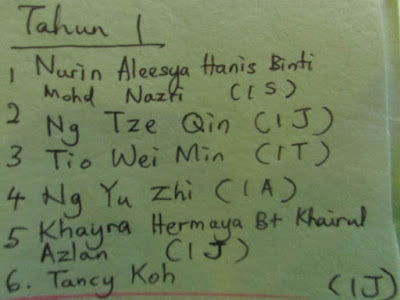 Tahun 1
1 Nurin Aleesya Hanis Binti
Mohd Nazri (1S)
2 Ng Tze Qin (1J)
3 Tio Wei Min (1T)
4 Ng Yu Zhi (1A)
5 Khayra Hermaya Bt Khairul
Azlan (1J)
6. Tancy Koh (1J)